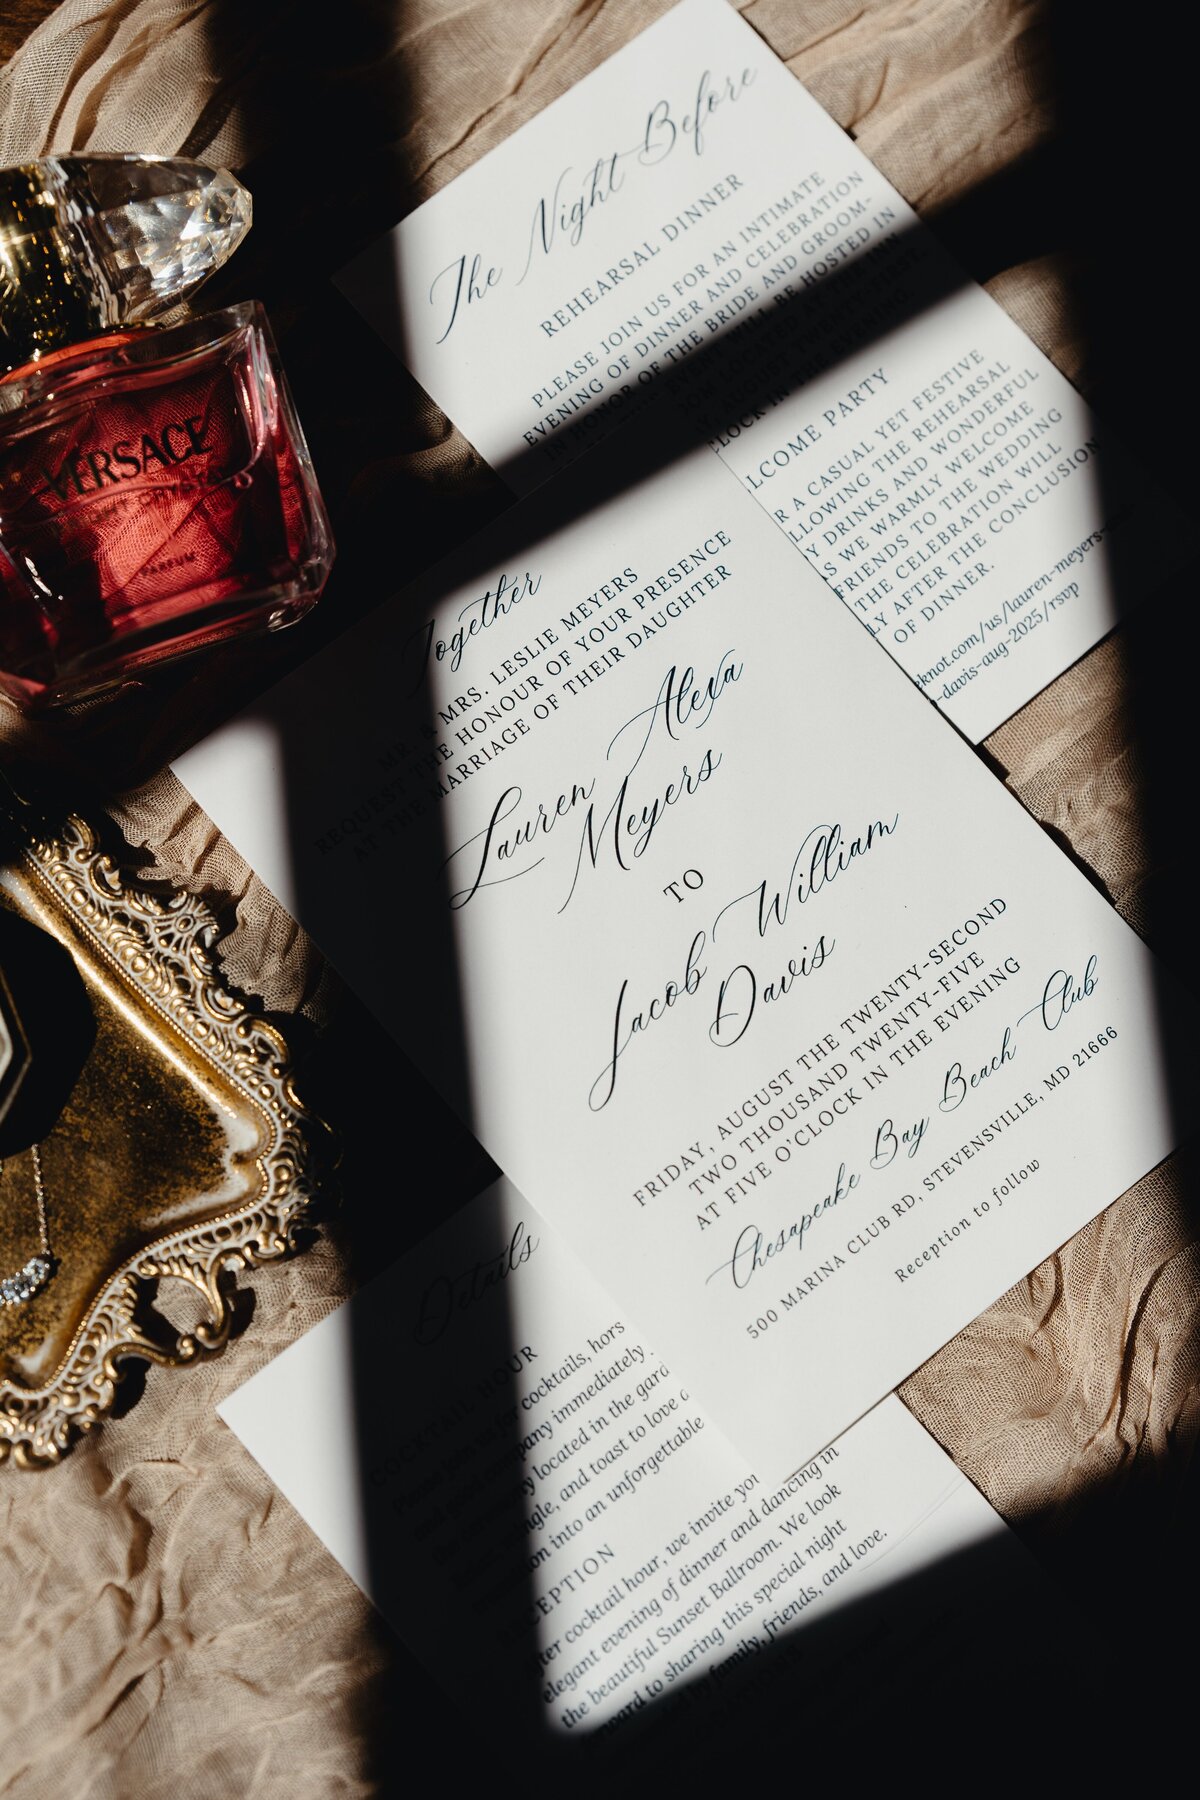 The Night Before
REHEARSAL DINNER
PLEASE JOIN US FOR AN INTIMATE
EVENING OF DINNER AND CELEBRATION
IN HONOR OF THE BRIDE AND GROOM-
EVENT WILL BE HOSTED IN
LOCATED AT THE
AUGUST TWENTY-FIRST,
CLOCK IN THE EVENING.
LCOME PARTY
R A CASUAL YET FESTIVE
LLOWING THE REHEARSAL
Y DRINKS AND WONDERFUL
S WE WARMLY WELCOME
FRIENDS TO THE WEDDING
THE CELEBRATION WILL
LY AFTER THE CONCLUSION
OF DINNER.
eknot.com/us/lauren-meyers-
-davis-aug-2025/rsvp
VERSACE
PARFUM
Together
MR. & MRS. LESLIE MEYERS
REQUEST THE HONOUR OF YOUR PRESENCE
AT THE MARRIAGE OF THEIR DAUGHTER
Lauren Alexa
Meyers
TO
Jacob William
Davis
FRIDAY, AUGUST THE TWENTY-SECOND
TWO THOUSAND TWENTY-FIVE
AT FIVE O'CLOCK IN THE EVENING
Chesapeake Bay Beach Club
500 MARINA CLUB RD, STEVENSVILLE, MD 21666
Reception to follow
Details
COCKTAIL HOUR
Please join us for cocktails, hors
and good company immediately
located in the gard
ingle, and toast to love
into an unforgettable
RECEPTION
fter cocktail hour, we invite you
elegant evening of dinner and dancing in
the beautiful Sunset Ballroom. We look
forward to sharing this special night
by family, friends, and love.